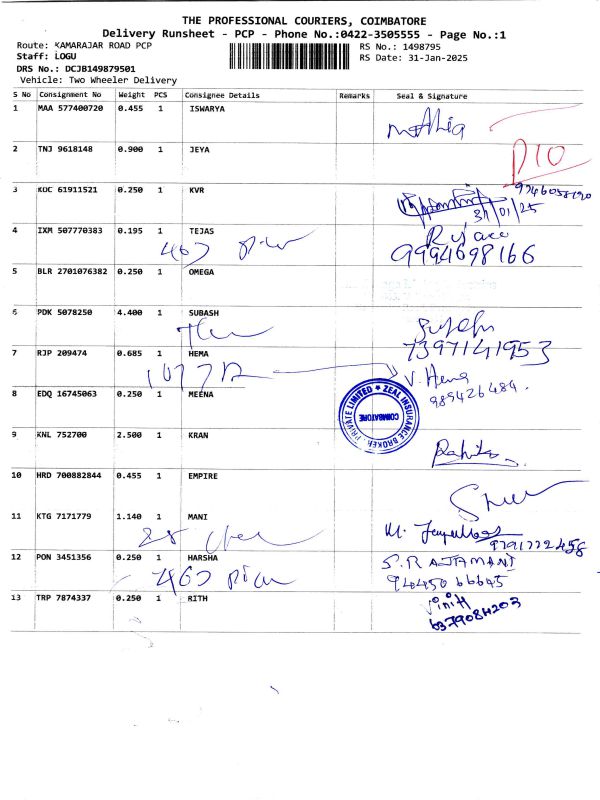 THE PROFESSIONAL COURIERS, COIMBATORE
Delivery Runsheet - PCP - Phone No.:0422-3505555 - Page No.:1
Route: KAMARAJAR ROAD PCP
RS No.: 1498795
Staff: LOGU
RS Date: 31-Jan-2025
DRS No.: DCJB149879501
Vehicle: Two Wheeler Delivery
S No Consignment No Weight PCS Consignee Details Remarks Seal & Signature
1 MAA 577400720 0.455 1 ISWARYA
2 TNJ 9618148 0.900 1 JEYA
3 KOC 61911521 0.250 1 KVR
31/01/25
4 IXM 507770383 0.195 1 TEJAS
9994698166
5 BLR 2701076382 0.250 1 OMEGA
6 PDK 5078250 4.400 1 SUBASH
7397141953
7 RJP 209474 0.685 1 HEMA
V. Hema
989426484.
8 EDQ 16745063 0.250 1 MEENA
ZEAL INSURANCE BROKER PRIVATE LIMITED
COIMBATORE
9 KNL 752700 2.500 1 KRAN
10 HRD 700882844 0.455 1 EMPIRE
11 KTG 7171779 1.140 1 MANI
9791772458
12 PON 3451356 0.250 1 HARSHA
S. RAJAMANI
13 TRP 7874337 0.250 1 RITH